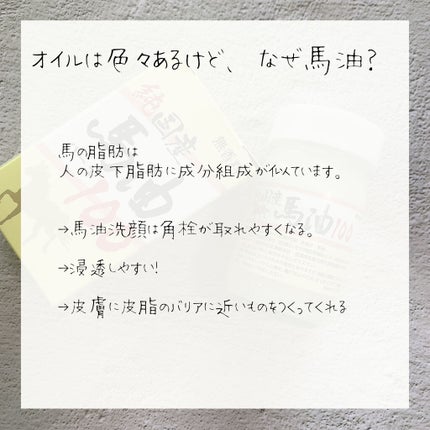 オイルは色々あるけど、 なぜ馬油?
馬の脂肪は
人の皮下脂肪に成分組成が似ています。
→馬油洗顔は角栓が取れやすくなる。
→浸透しやすい!
→皮膚に皮脂のバリアに近いものをつくってくれる
純国産
馬油
100
馬油100